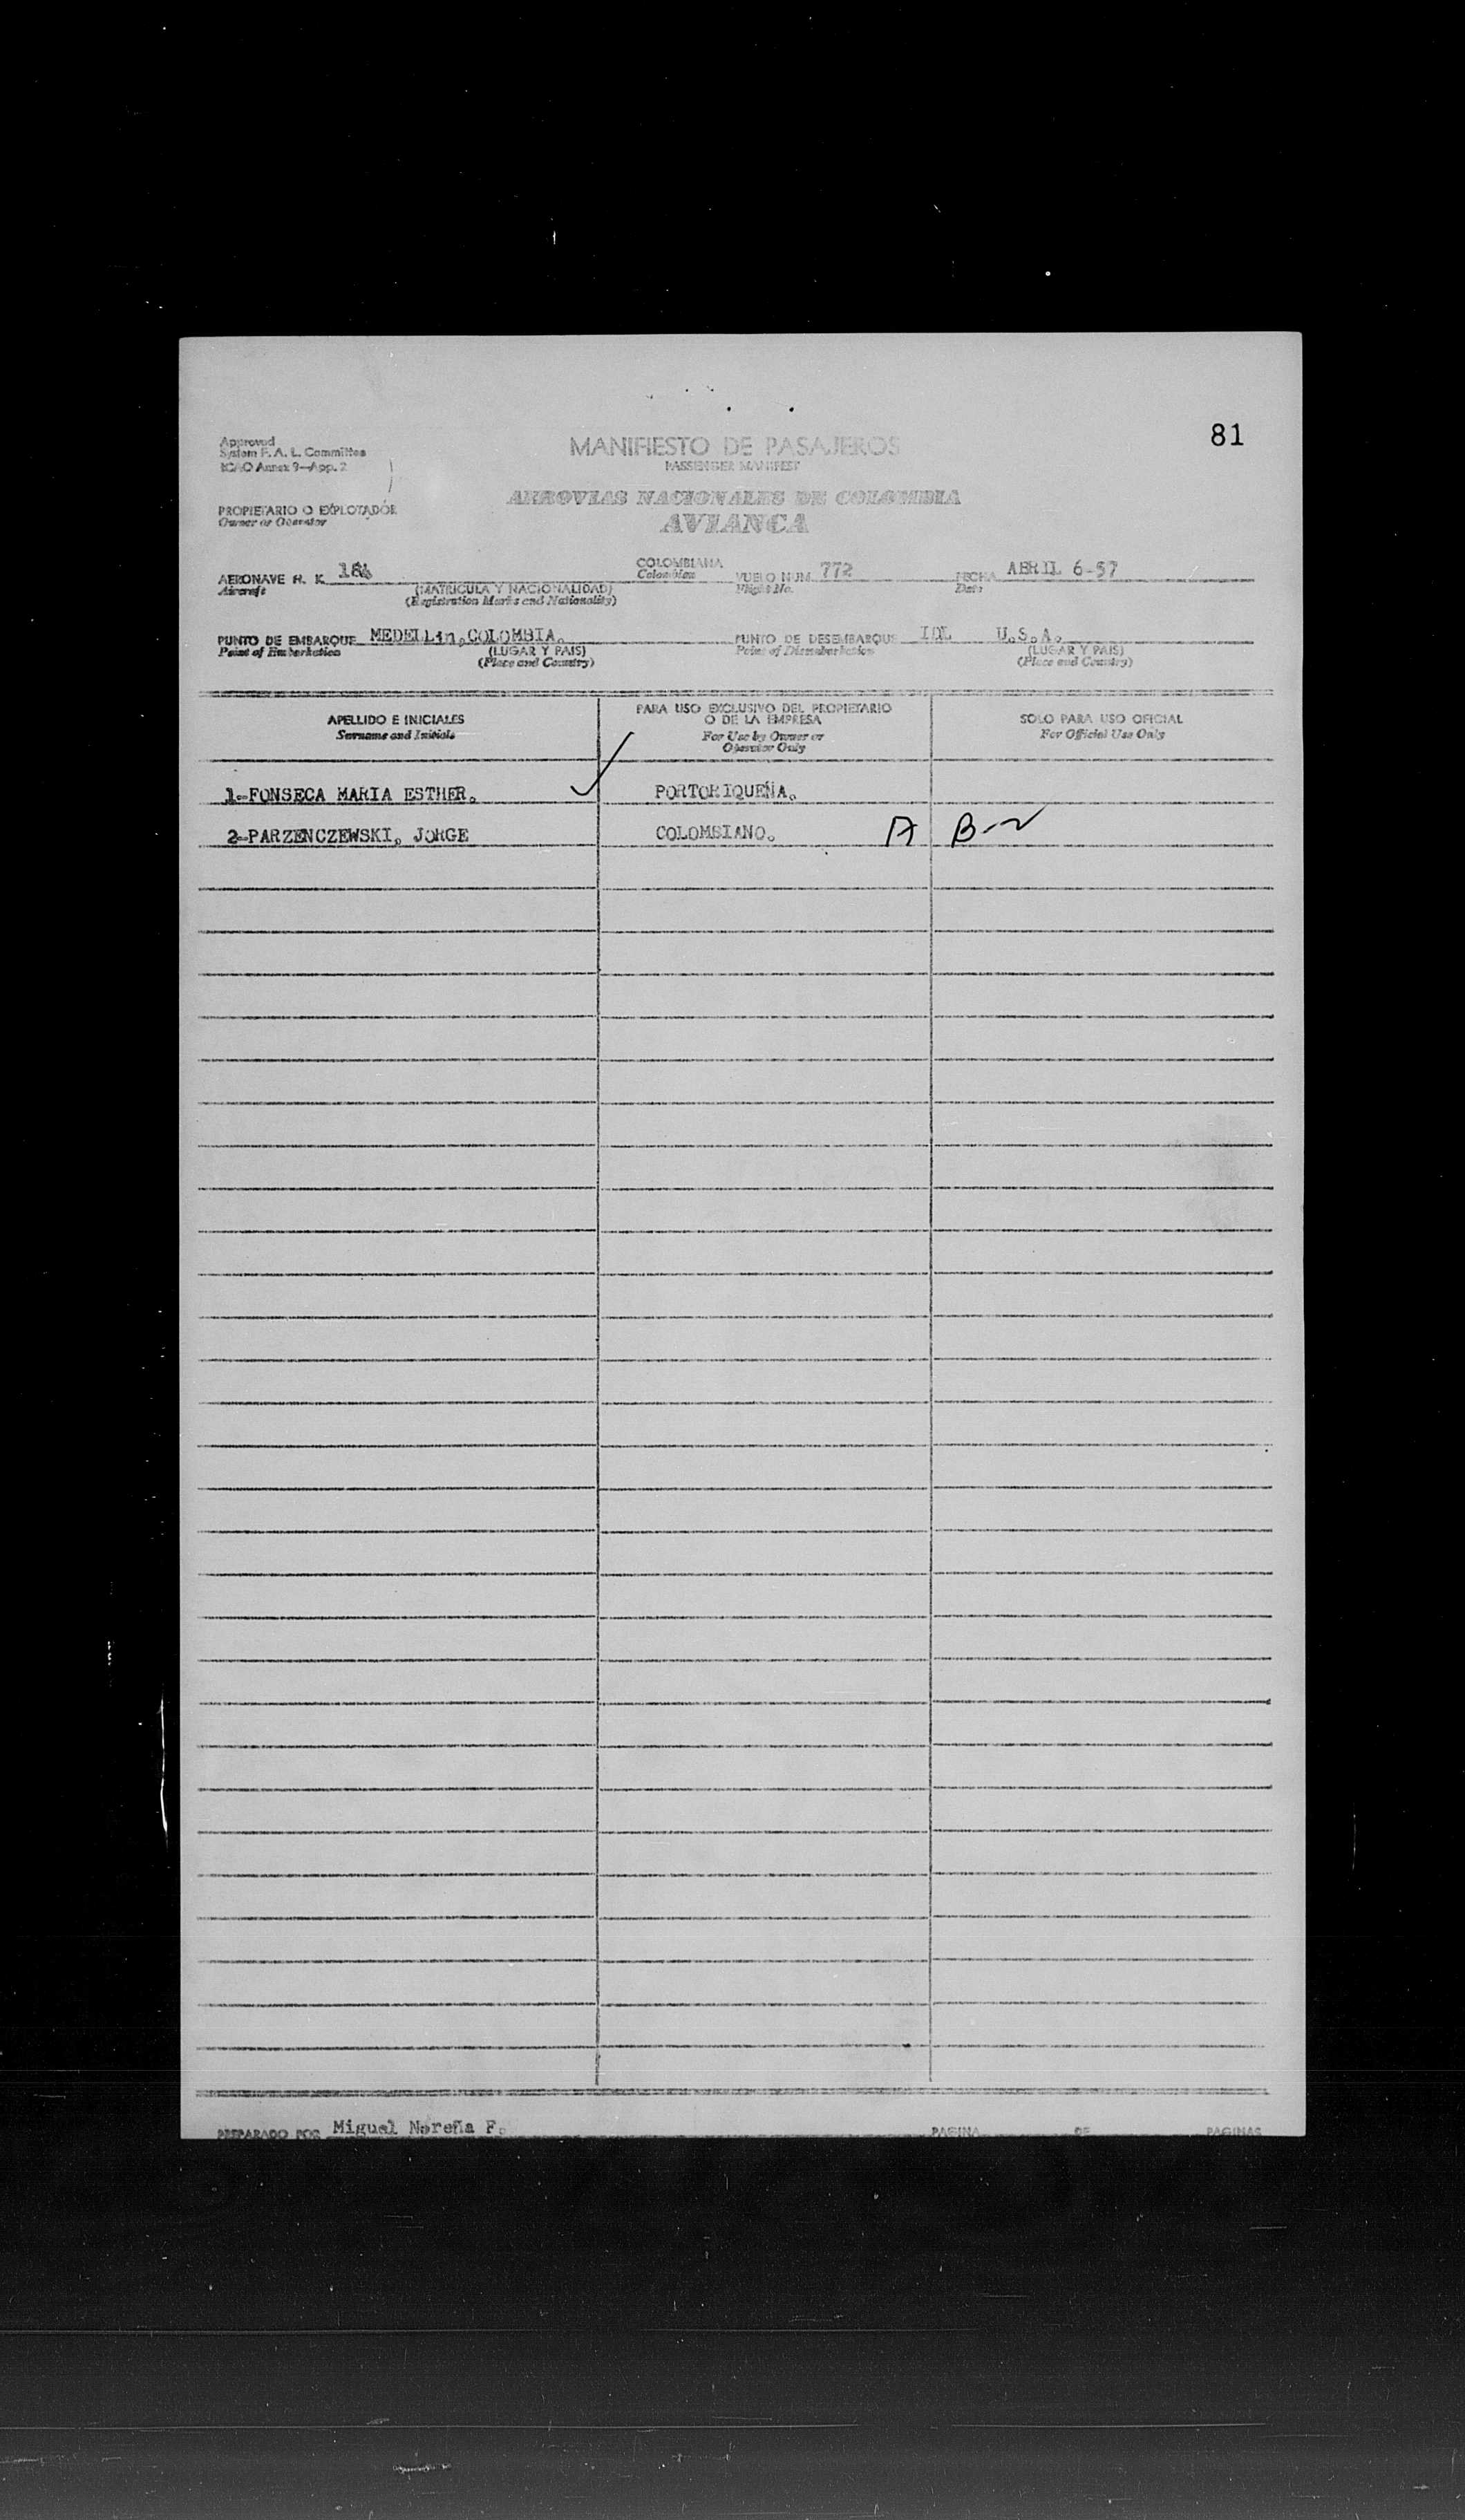 81
Approved
System F. A. L. Committee
ICAO Annex 9—App. 2
MANIFIESTO DE PASAJEROS
PASSENGER MANIFEST
AEROVIAS NACIONALES DE COLOMBIA
AVIANCA
PROPIETARIO O EXPLOTADOR
Owner or Operator
AERONAVE H. K. COLOMBIANA VUELO NUM. 772 FECHA ABRIL 6-57
Aircraft Colombian Flight No. Date
(MATRICULA Y NACIONALIDAD)
(Registration Marks and Nationality)
PUNTO DE EMBARQUE MEDELLin,COLOMBIA. PUNTO DE DESEMBARQUE IDL U.S.A.
Point of Embarkation (LUGAR Y PAIS) Point of Disembarkation (LUGAR Y PAIS)
(Place and Country) (Place and Country)
APELLIDO E INICIALES
Surname and Initials
PARA USO EXCLUSIVO DEL PROPIETARIO
O DE LA EMPRESA
For Use by Owner or
Operator Only
SOLO PARA USO OFICIAL
For Official Use Only
1-FONSECA MARIA ESTHER. PORTORIQUEÑA.
2-PARZENCZEWSKI, JORGE COLOMBIANO. A B-2
PREPARADO POR Miguel Noreña F. PAGINA DE PAGINAS